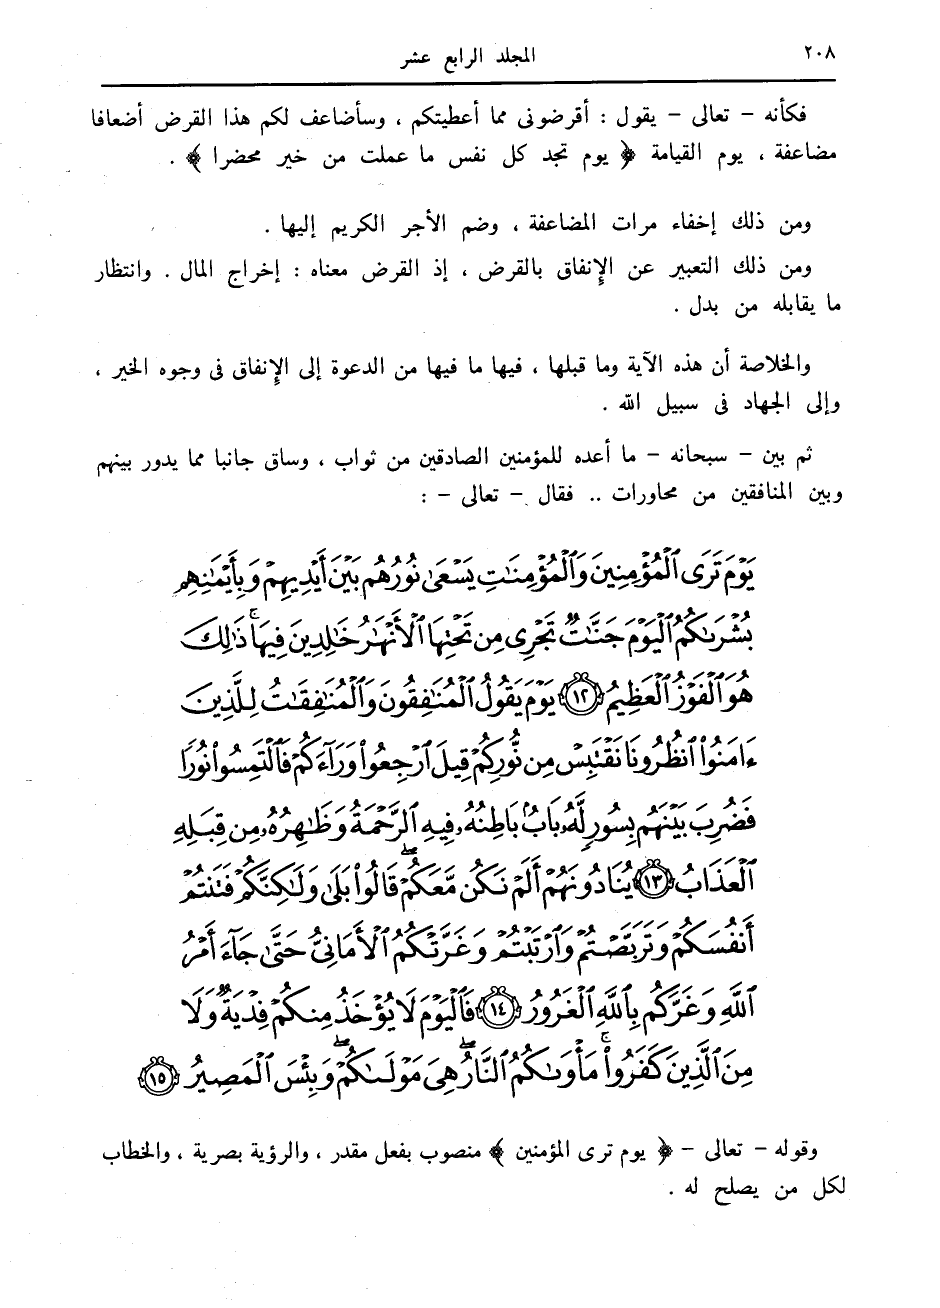 ٢٠٨ المجلد الرابع عشر
فكأنه - تعالى - يقول : أقرضونى مما أعطيتكم ، وسأضاعف لكم هذا القرض أضعافا
مضاعفة ، يوم القيامة ﴿ يوم تجد كل نفس ما عملت من خير محضرا ﴾ .
ومن ذلك إخفاء مرات المضاعفة ، وضم الأجر الكريم إليها .
ومن ذلك التعبير عن الإنفاق بالقرض ، إذ القرض معناه : إخراج المال . وانتظار
ما يقابله من بدل .
والخلاصة أن هذه الآية وما قبلها ، فيها ما فيها من الدعوة إلى الإنفاق فى وجوه الخير ،
وإلى الجهاد فى سبيل الله .
ثم بين - سبحانه - ما أعده للمؤمنين الصادقين من ثواب ، وساق جانبا مما يدور بينهم
وبين المنافقين من محاورات .. فقال - تعالى - :
يَوْمَ تَرَى ٱلْمُؤْمِنِينَ وَٱلْمُؤْمِنَٰتِ يَسْعَىٰ نُورُهُم بَيْنَ أَيْدِيهِمْ وَبِأَيْمَٰنِهِم
بُشْرَىٰكُمُ ٱلْيَوْمَ جَنَّٰتٌ تَجْرِى مِن تَحْتِهَا ٱلْأَنْهَٰرُ خَٰلِدِينَ فِيهَا ۚ ذَٰلِكَ
هُوَ ٱلْفَوْزُ ٱلْعَظِيمُ ١٢ يَوْمَ يَقُولُ ٱلْمُنَٰفِقُونَ وَٱلْمُنَٰفِقَٰتُ لِلَّذِينَ
ءَامَنُوا۟ ٱنظُرُونَا نَقْتَبِسْ مِن نُّورِكُمْ قِيلَ ٱرْجِعُوا۟ وَرَآءَكُمْ فَٱلْتَمِسُوا۟ نُورًا
فَضُرِبَ بَيْنَهُم بِسُورٍ لَّهُۥ بَابٌۢ بَاطِنُهُۥ فِيهِ ٱلرَّحْمَةُ وَظَٰهِرُهُۥ مِن قِبَلِهِ
ٱلْعَذَابُ ١٣ يُنَادُونَهُمْ أَلَمْ نَكُن مَّعَكُمْ ۖ قَالُوا۟ بَلَىٰ وَلَٰكِنَّكُمْ فَتَنتُمْ
أَنفُسَكُمْ وَتَرَبَّصْتُمْ وَٱرْتَبْتُمْ وَغَرَّتْكُمُ ٱلْأَمَانِىُّ حَتَّىٰ جَآءَ أَمْرُ
ٱللَّهِ وَغَرَّكُم بِٱللَّهِ ٱلْغَرُورُ ١٤ فَٱلْيَوْمَ لَا يُؤْخَذُ مِنكُمْ فِدْيَةٌ وَلَا
مِنَ ٱلَّذِينَ كَفَرُوا۟ ۚ مَأْوَىٰكُمُ ٱلنَّارُ ۖ هِىَ مَوْلَىٰكُمْ ۖ وَبِئْسَ ٱلْمَصِيرُ ١٥
وقوله - تعالى - ﴿ يوم ترى المؤمنين ﴾ منصوب بفعل مقدر ، والرؤية بصرية ، والخطاب
لكل من يصلح له .